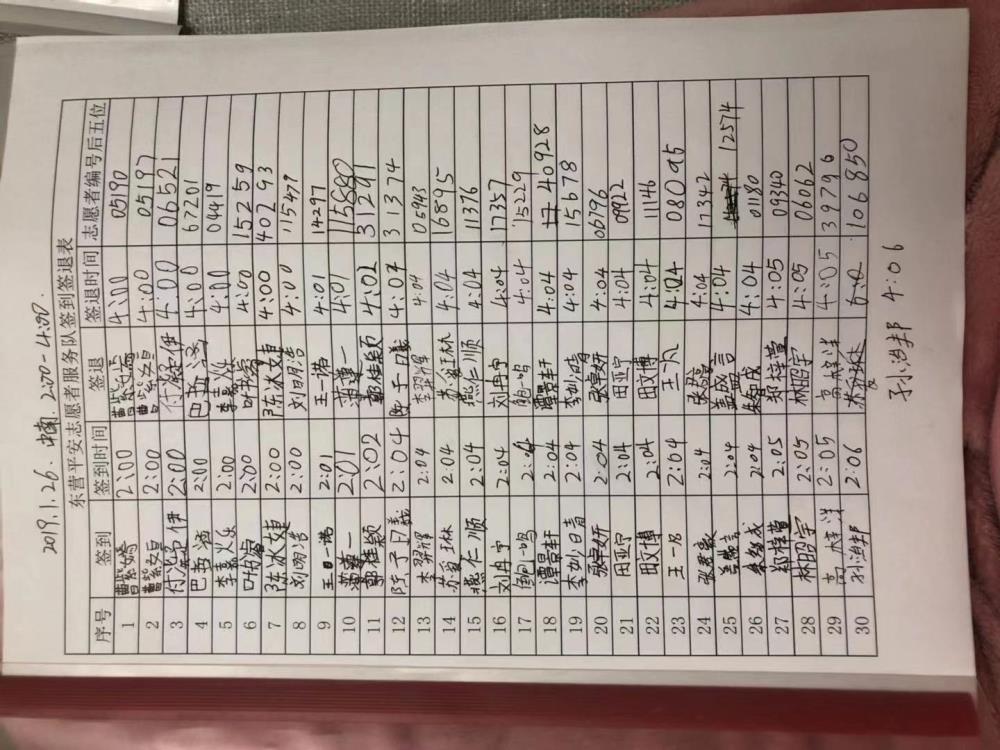 2019.1.26. 2:00-4:00.
东营平安志愿者服务队签到签退表
序号 签到 签到时间 签退 签退时间 志愿者编号后五位
1 曹紫嫣 2:00 曹紫嫣 4:00 05190
2 曹紫烜 2:00 曹紫烜 4:00 05197
3 2:00 4:00 06521
4 2:00 4:00 67201
5 2:00 4:00 04419
6 2:00 4:00 15259
7 陈冰婕 2:00 陈冰婕 4:00 40793
8 刘明浩 2:00 刘明浩 4:00 15479
9 王一诺 2:01 王一诺 4:01 14297
10 2:01 4:01 15680
11 郭佳颖 2:02 郭佳颖 4:02 31291
12 2:04 4:04 31374
13 李羿辉 2:04 李羿辉 4:04 05943
14 2:04 4:04 16895
15 燕仁顺 2:04 燕仁顺 4:04 11376
16 刘丹宁 2:04 刘丹宁 4:04 17357
17 鲍一鸣 2:04 鲍一鸣 4:04 15229
18 谭景轩 2:04 谭景轩 4:04 40928
19 2:04 4:04 15678
20 张卓妍 2:04 张卓妍 4:04 06796
21 田亚宁 2:04 田亚宁 4:04 0992
22 田文博 2:04 田文博 4:04 11146
23 2:04 4:04 08095
24 2:04 4:04 17342
25 2:04 4:04 12574
26 2:04 4:04 01180
27 郑梓萱 2:05 郑梓萱 4:05 09340
28 林昭宇 2:05 林昭宇 4:05 06062
29 2:05 4:05 39796
30 孙浩邦 2:06 106850
孙浩邦 4:06